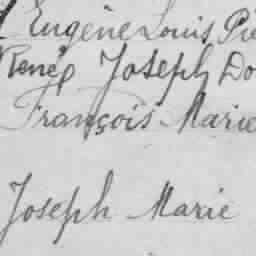 Eugène Louis Pie
René Joseph Do
François Marie
Joseph Marie